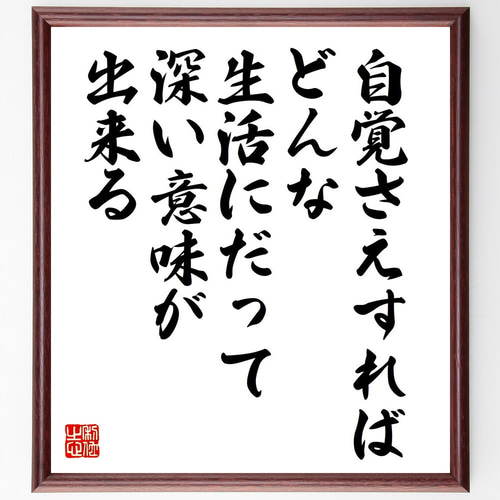 自覚さえすれば
どんな
生活にだって
深い意味が
出来る